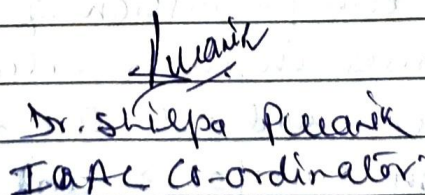 Dr. Shilpa Puranik
IQAC Co-ordinator